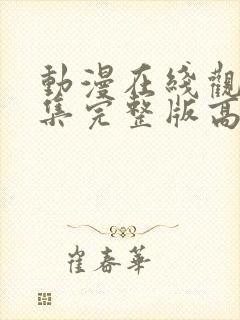 動漫在綫觀
集完整版高
崔春華